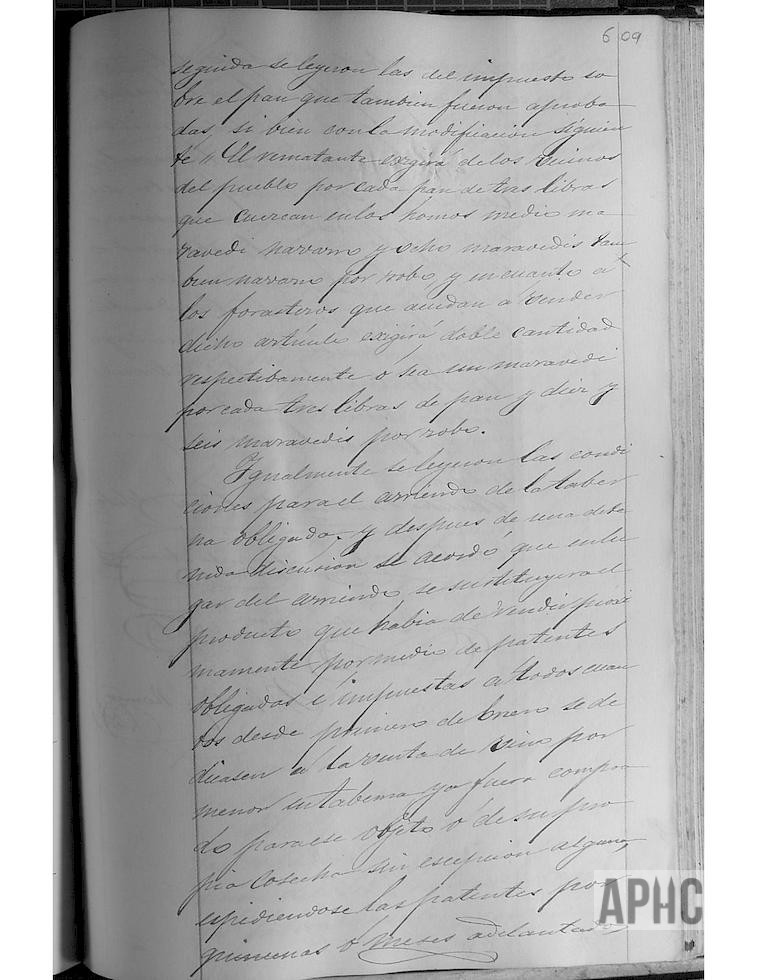 6 09
seguida se leyeron las del impuesto so
bre el pan que tambien fueron aproba
das, si bien con la modificacion siguien
te " El rematante exigirá de los vecinos
del pueblo por cada pan de tres libras
que cuezcan en los hornos medio ma
ravedi navarro y ocho maravedis tam
bien navarro por robo, y en cuanto a
los forasteros que acudan a vender
dicho artículo exigirá doble cantidad
respectibamente ó sea un maravedi
por cada tres libras de pan y diez y
seis maravedis por robo.
Igualmente se leyeron las condi
ciones para el arriendo de la taber
na obligada, y despues de una dete
nida discusion se acordó que en lu
gar del arriendo se sustituyera el
producto que habia de rendir proxi
mamente por medio de patentes
obligadas e impuestas a todos cuan
tos desde primero de Enero se de
dicasen a la venta de vino por
menor en taberna ya fuera compra
do para ese objeto ó de su pro
pia cosecha sin escepcion alguna,
espidiendose las patentes por
quincenas ó meses adelantados
APHC